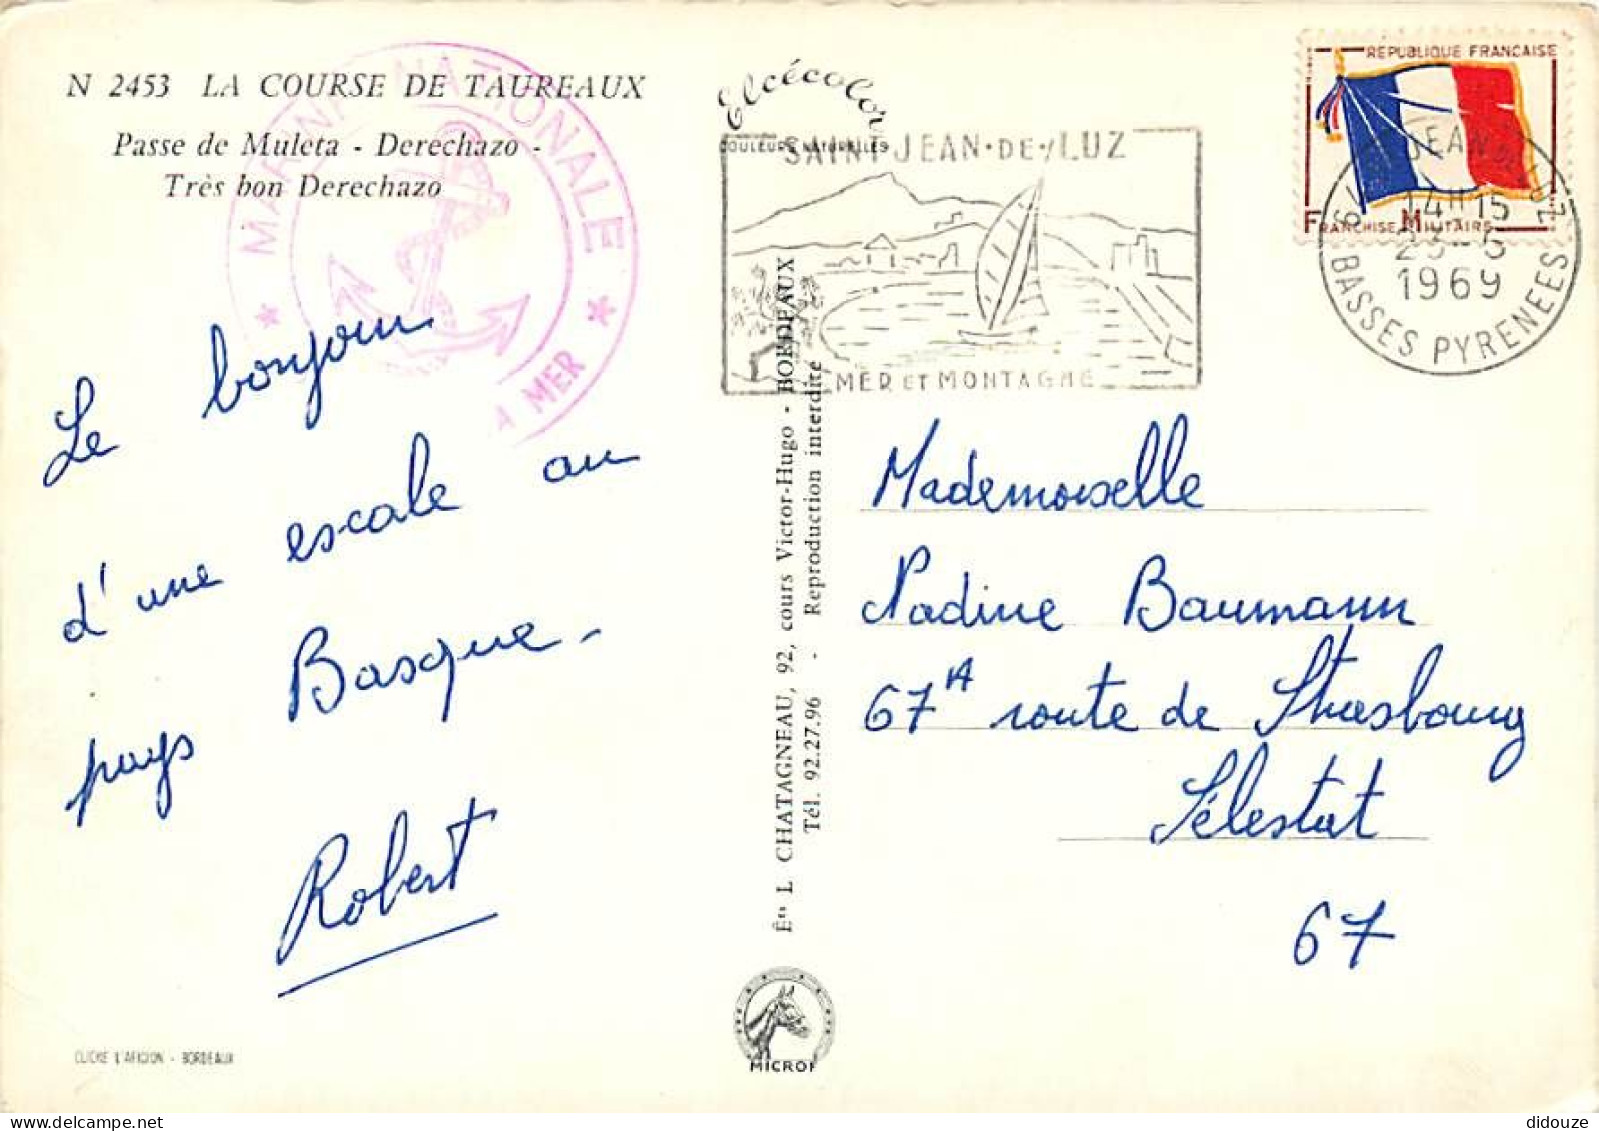 N 2453 LA COURSE DE TAUREAUX
Passe de Muleta - Derechazo -
Très bon Derechazo
MARINE NATIONALE
A MER
Le bonjour
d'une escale au
pays Basque -
Robert
CLICHE L'AFICION - BORDEAUX
Elcécolor
COULEURS NATURELLES
SAINT JEAN-DE-LUZ
MER ET MONTAGNE
Éts L CHATAGNEAU, 92, cours Victor-Hugo - BORDEAUX
Tél. 92.27.96 - Reproduction interdite
MICROF
REPUBLIQUE FRANCAISE
FRANCHISE MILITAIRE
14H15
1969
BASSES PYRENEES
Mademoiselle
Nadine Baumann
67A route de Strasbourg
Sélestat
67
didouze